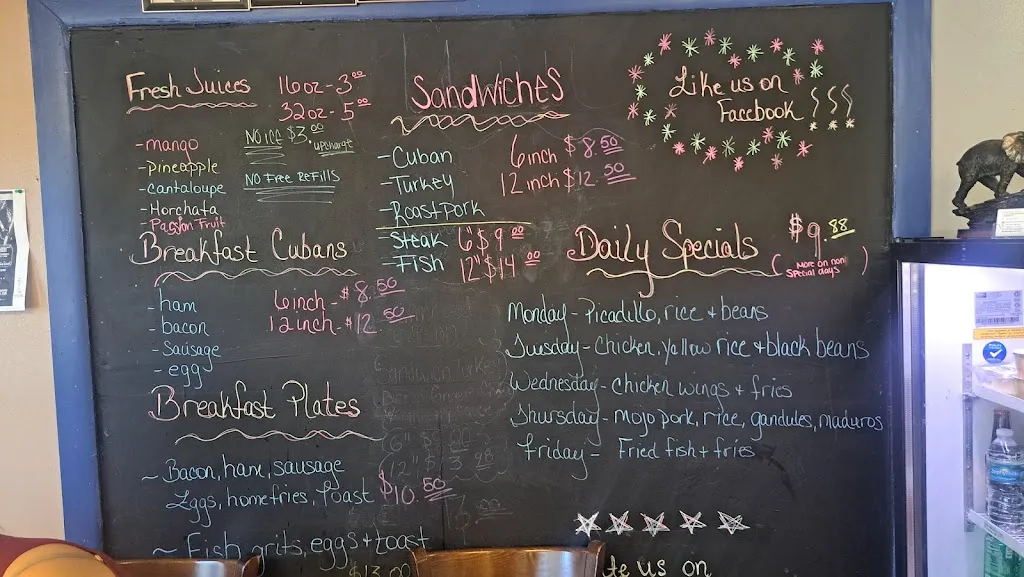 Fresh Juices
16oz-3.00
32oz-5.00
NO ICE $3.00
upcharge
NO Free Refills
-mango
-pineapple
-cantaloupe
-Horchata
-Passion Fruit
Breakfast Cubans
-ham
-bacon
-Sausage
-egg
6inch-$8.50
12inch-$12.50
Breakfast Plates
~ Bacon, ham, sausage
Eggs, homefries, toast $10.50
~ Fish, grits, eggs + toast
$13.00
Sandwiches
-Cuban
-Turkey
-Roast pork
6inch $8.50
12inch $12.50
-Steak 6" $9.00
-Fish 12" $14.00
Like us on
Facebook
Daily Specials $9.88
(More on non
special days)
Monday- Picadillo, rice + beans
Tuesday- Chicken, yallow rice + black beans
Wednesday- chicken wings + fries
Thursday- Mojo pork, rice, gandules, maduros
Friday- Fried fish + fries
us on